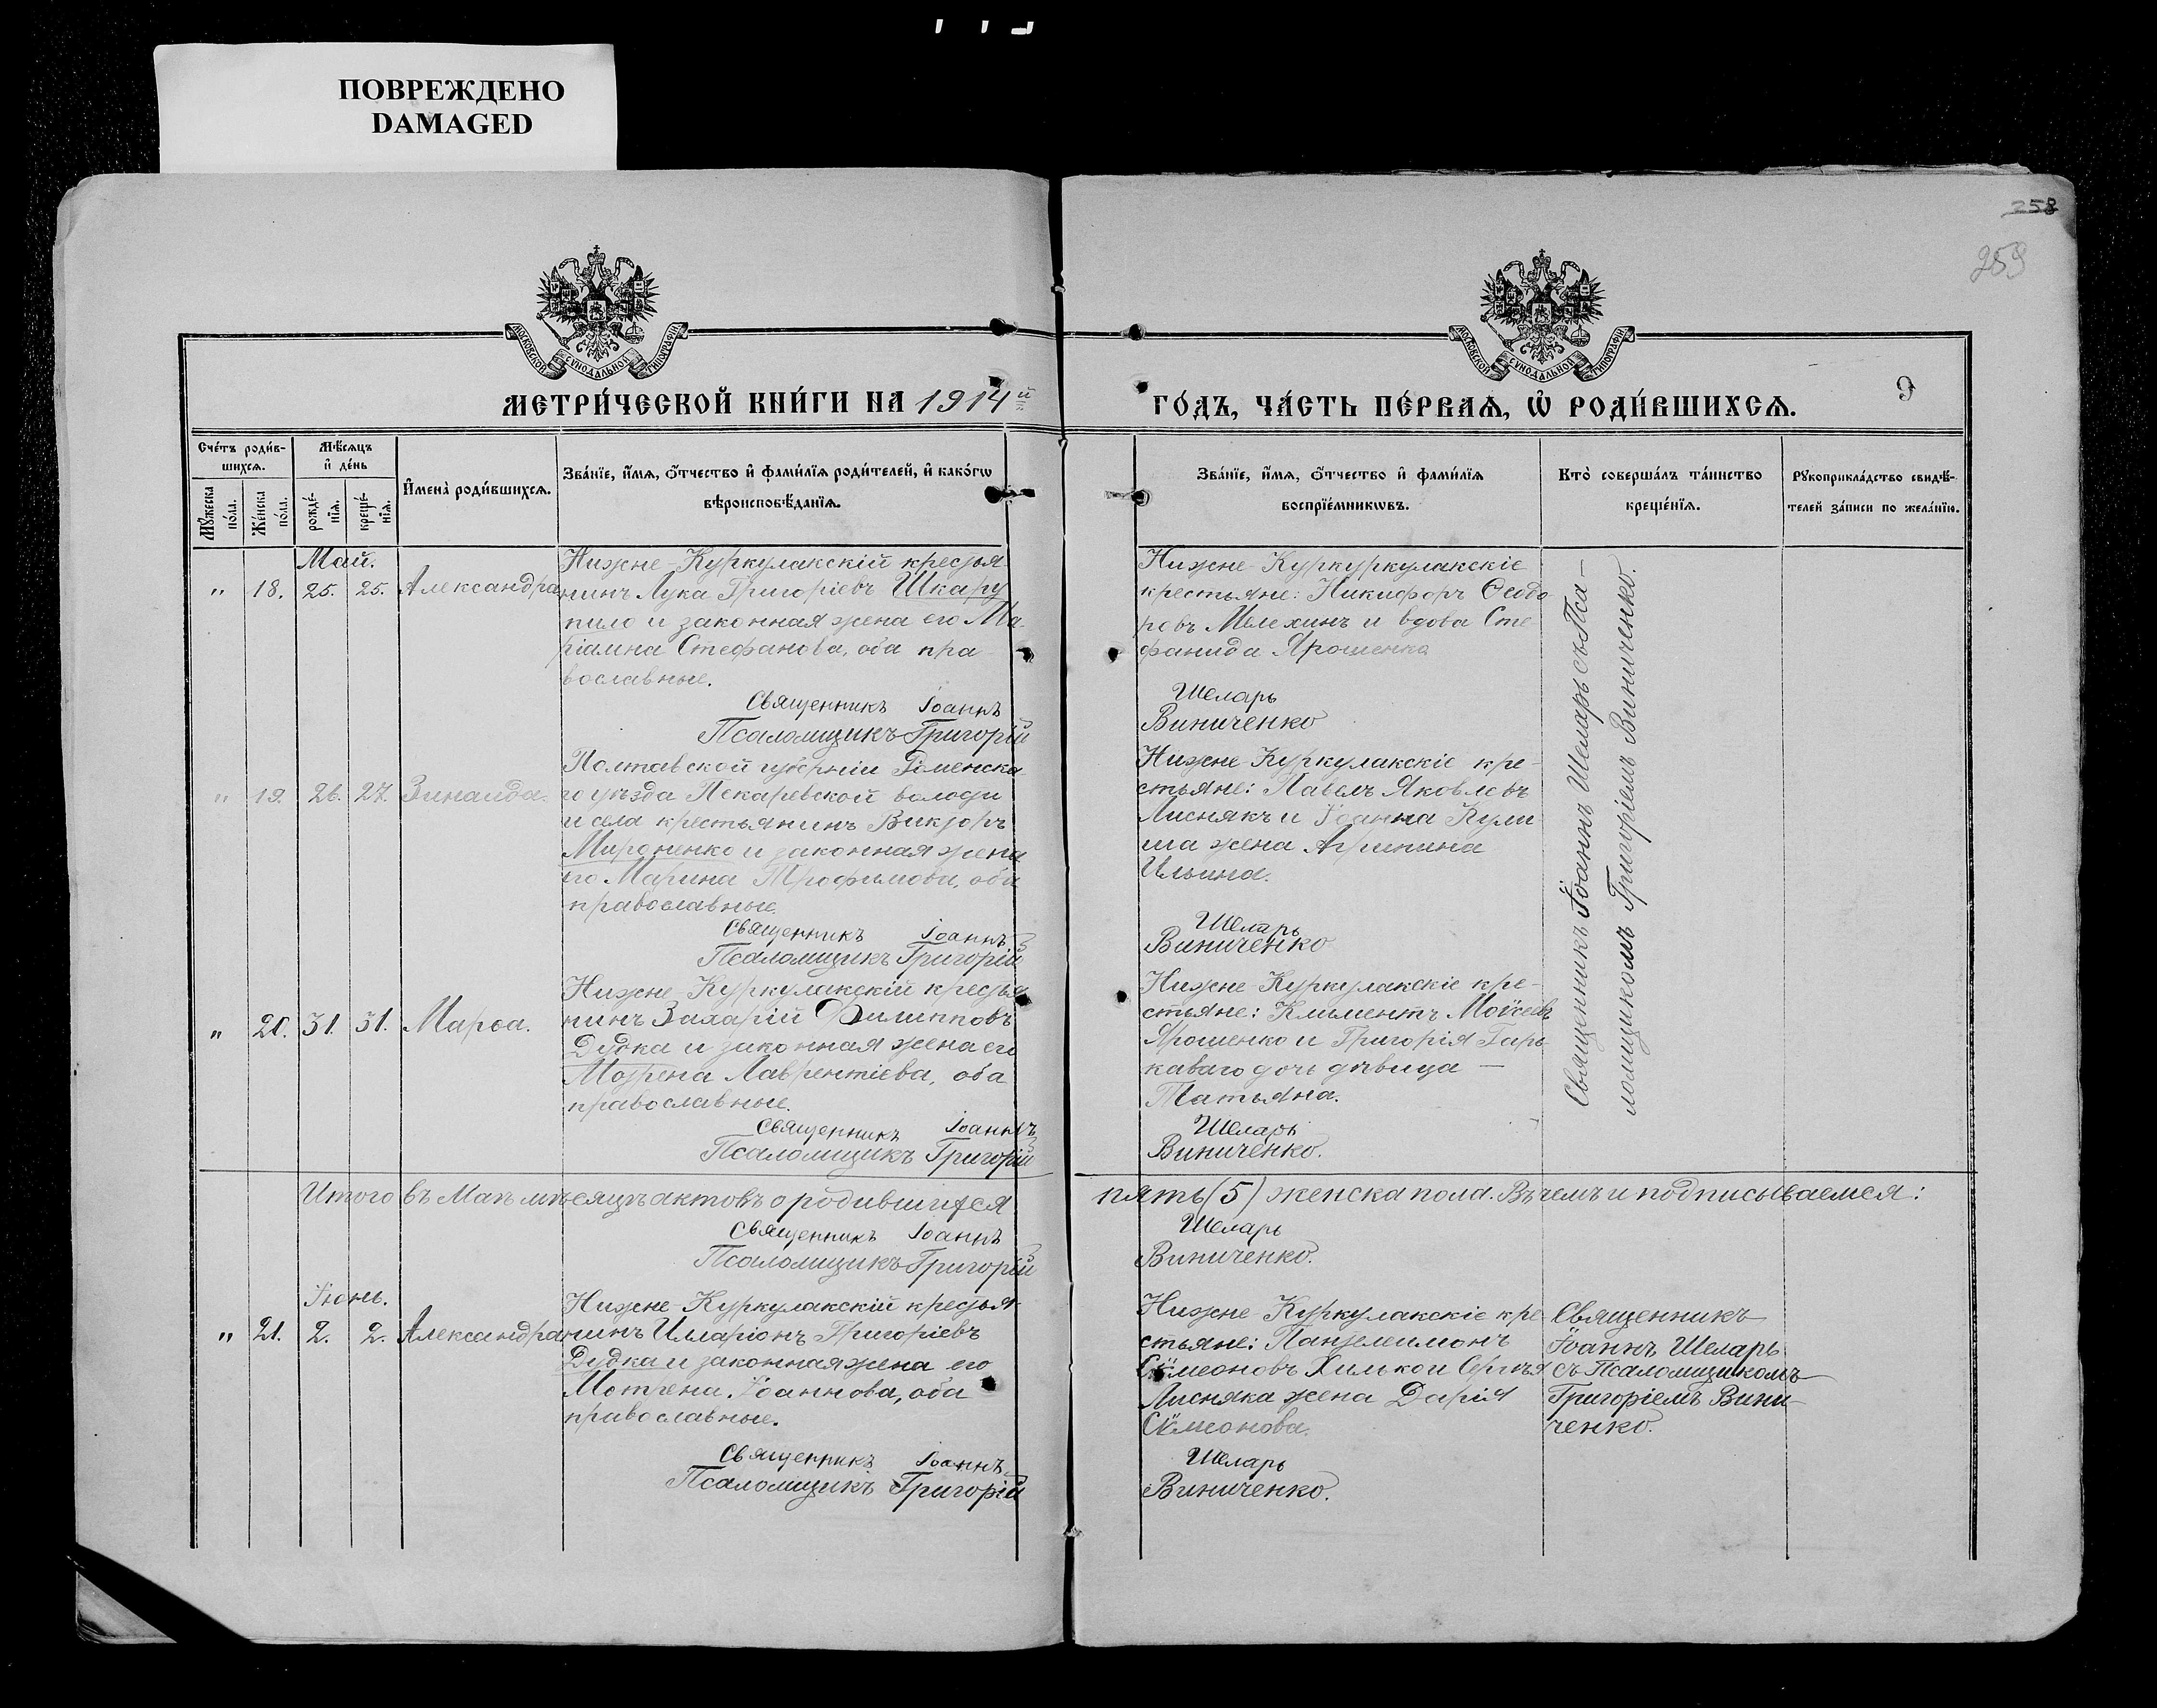 ПОВРЕЖДЕНО
DAMAGED
258
259
9
МОСКОВСКОЙ СѴНОДАЛЬНОЙ ТИПОГРАФІИ
МОСКОВСКОЙ СѴНОДАЛЬНОЙ ТИПОГРАФІИ
МЕТРИ́ЧЕСКОЙ КНИ́ГИ НА 1914й
ГО́ДЪ, ЧА́СТЬ ПЕ́РВАѦ, Ѡ҆ РОДИ́ВШИХСѦ.
Сче́тъ роди́в-
шихсѧ.
Мѣ́сѧцъ
и҆ де́нь
Мꙋ́жеска
по́ла.
Же́нска
по́ла.
рожде́-
нїѧ.
креще́-
нїѧ.
И҆мена̀ роди́вшихсѧ.
Зва́нїе, и҆́мѧ, ѻ҆́тчество и҆ фами́лїѧ роди́телей, и҆ како́гѡ
вѣроисповѣ́данїѧ.
Зва́нїе, и҆́мѧ, ѻ҆́тчество и҆ фами́лїѧ
воспрїе́мникѡвъ.
Кто̀ соверша́лъ та́инство
креще́нїѧ.
Рꙋкоприкла́дство свидѣ́-
телей за́писи по жела́нїю.
Май.
" 18. 25. 25. Александра
Нижне-Куркулакскій крестья
нинъ Лука Григоріевъ Шкару
пило и законная жена его Ма
ріамна Стефанова, оба пра
вославные.
Священникъ Іоаннъ
Псаломщикъ Григорій
Нижне-Куркуркулакскіе
крестьяне: Никифоръ Ѳеодо
ровъ Мелехинъ и вдова Сте
фанида Ярошенко
Шеларь
Виниченко
" 19. 26. 27. Зинаида.
Полтавской губерніи Роменска
го уѣзда Пекаревской волости
и села крестьянинъ Викторъ
Мироненко и законная жена
его Марина Трофимова, оба
православные.
Священникъ Іоаннъ
Псаломщикъ Григорій
Нижне Куркулакскіе кре-
стьяне: Павелъ Яковлевъ
Лиснякъ и Іоанна Кули
ша жена Агрипина
Ильина.
Шеларь
Виниченко
" 20. 31. 31. Марѳа.
Нижне-Куркулакскій крестья
нинъ Захарій Филипповъ
Дудка и законная жена его
Мотрена Лаврентіева, оба
православные.
Священникъ Іоаннъ
Псаломщикъ Григорій
Нижне Куркулакскіе кре-
стьяне: Климентъ Моѵсеевъ
Ярошенко и Григорія Гарь
каваго дочь дѣвица —
Татьяна.
Шеларь
Виниченко.
Священникъ Іоаннъ Шеларь съ Пса-
ломщикомъ Григоріемъ Виниченко.
Итого въ Маѣ мѣсяцѣ актовъ о родившихся пять (5) женска пола. Въ чемъ и подписываемся:
Священникъ Іоаннъ Шеларь
Псаломщикъ Григорій Виниченко.
Іюнь.
" 21. 2. 2. Александра
Нижне-Куркулакскій крестья-
нинъ Иларіонъ Григоріевъ
Дудка и законная жена его
Мотрена Іоаннова, оба
православные.
Священникъ Іоаннъ
Псаломщикъ Григорій
Нижне-Куркулакскіе кре-
стьяне: Пантелеимонъ
Сѵмеоновъ Хилько и Сергѣя
Лисняка жена Дарія
Сѵмеонова.
Шеларь
Виниченко.
Священникъ
Іоаннъ Шеларь
съ Псаломщикомъ
Григоріемъ Вини-
ченко.